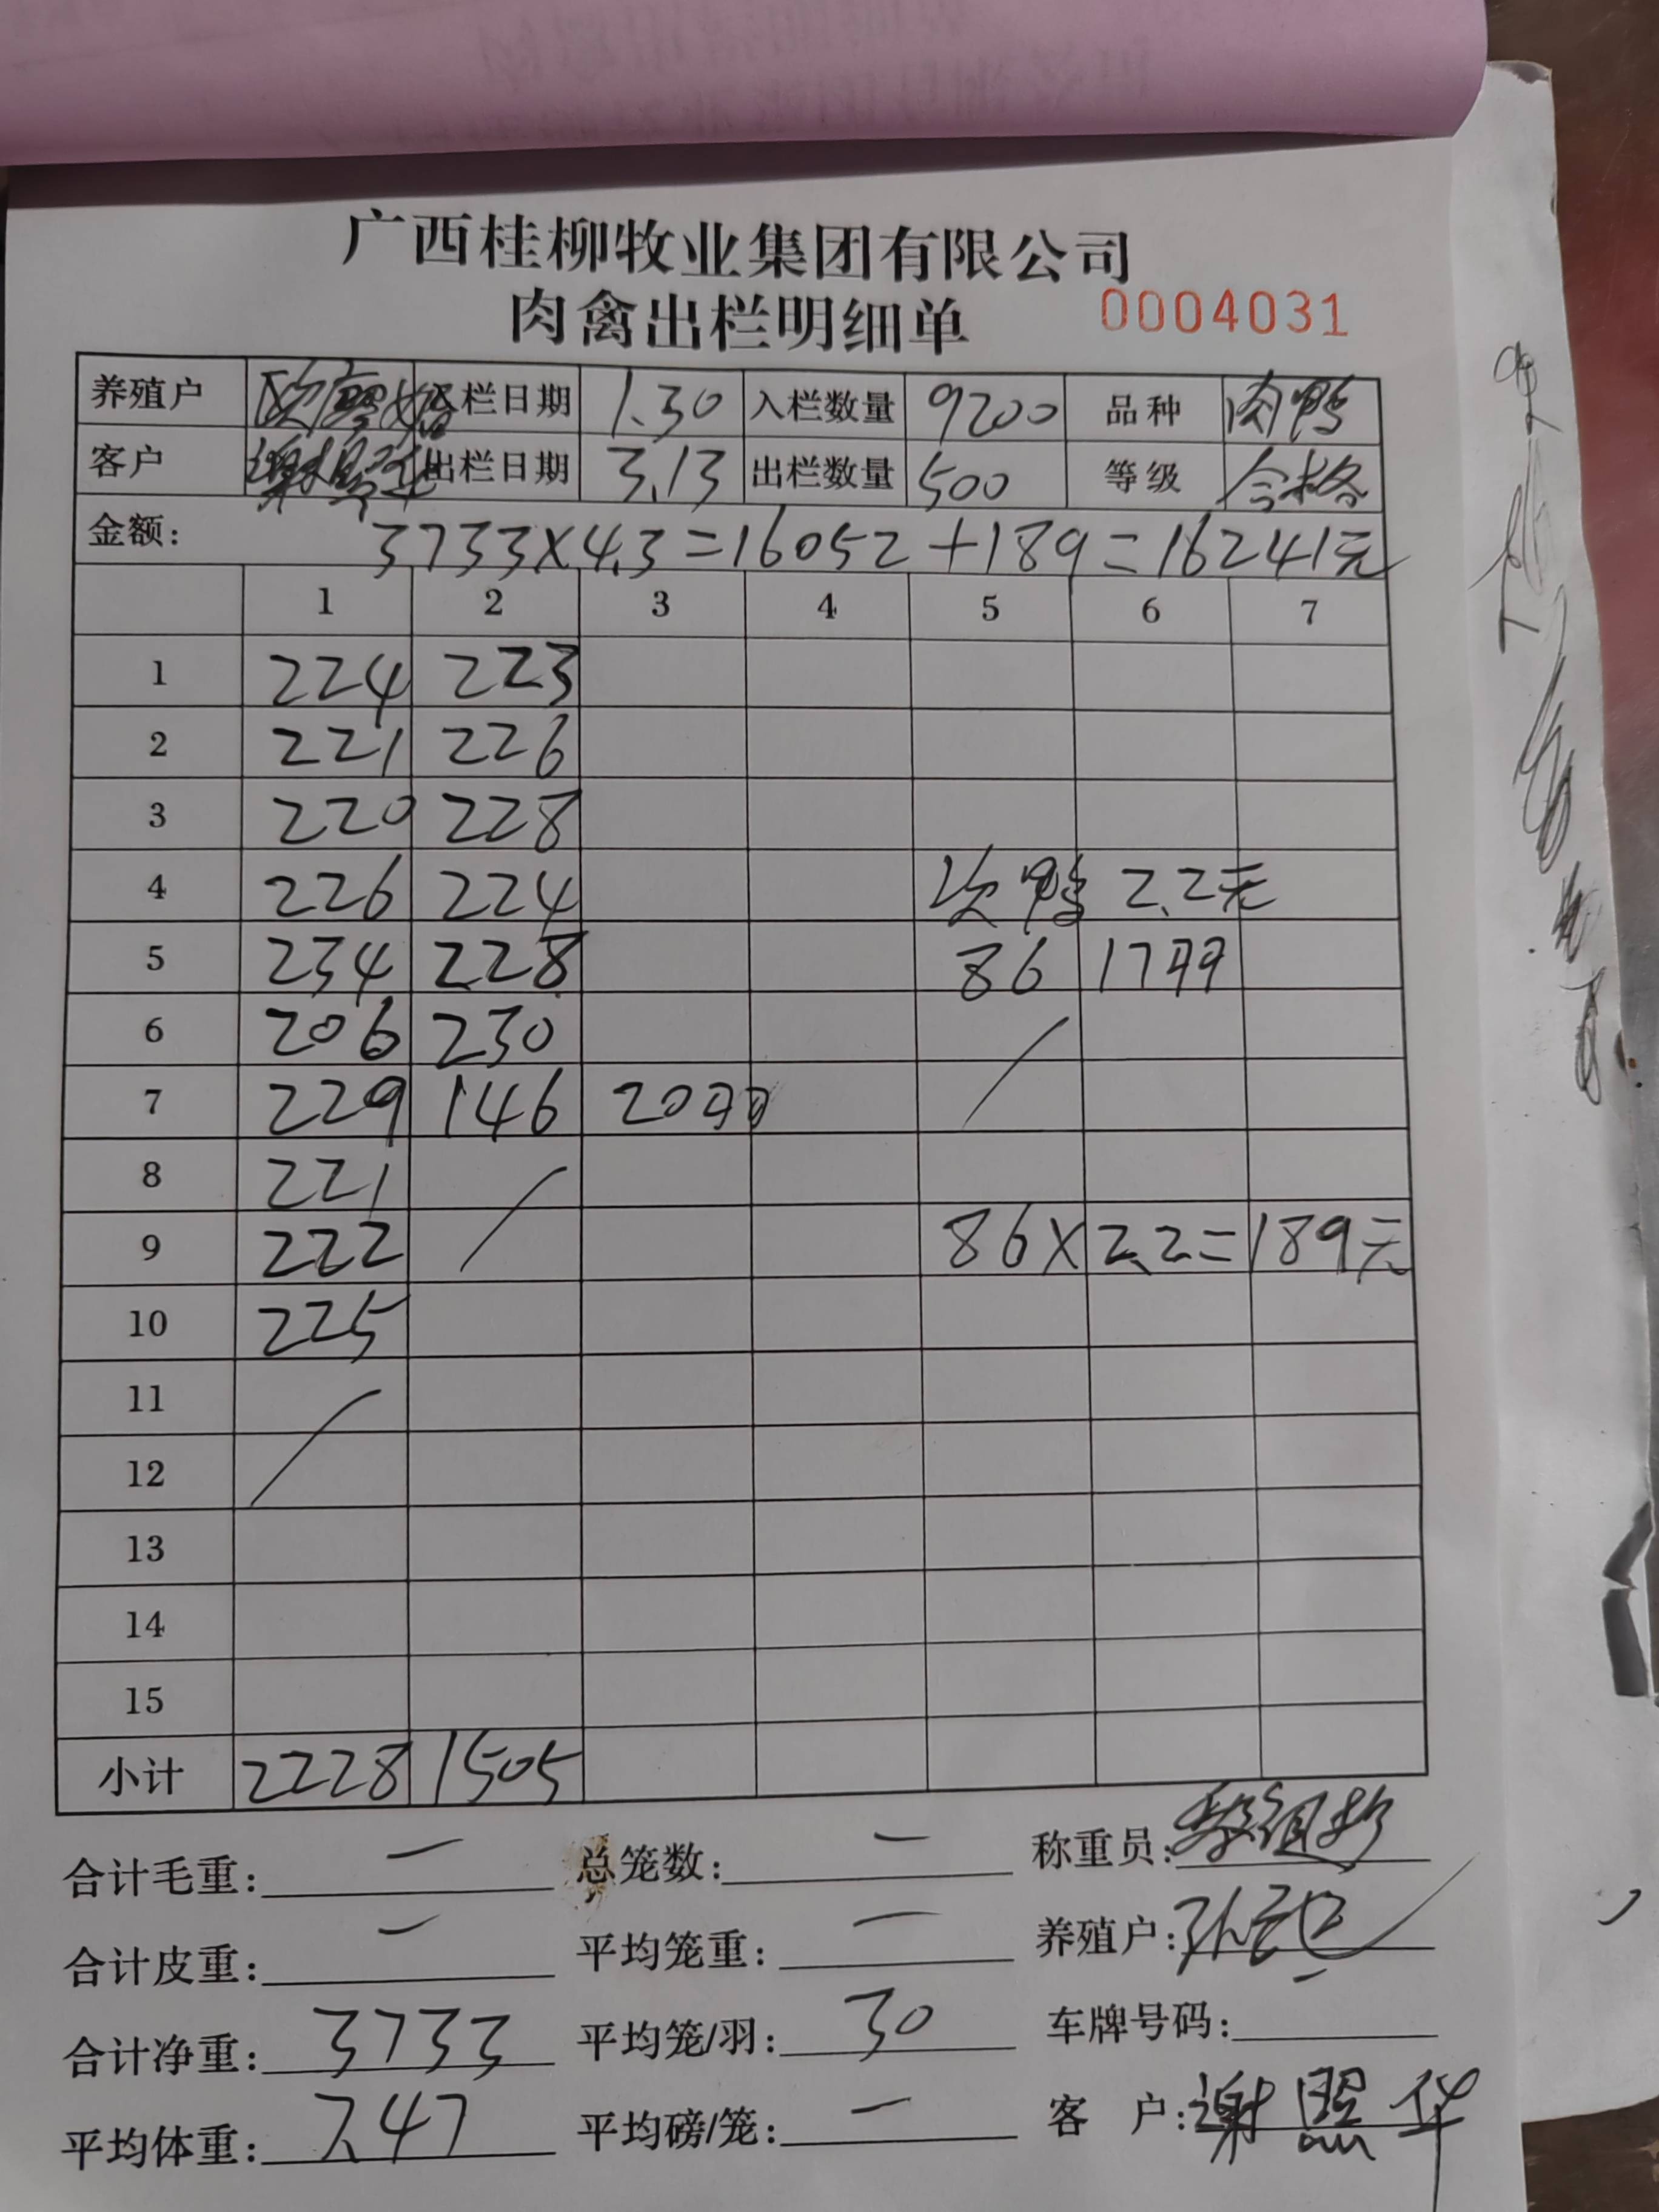 广西桂柳牧业集团有限公司
肉禽出栏明细单 0004031
养殖户 入栏日期 1.30 入栏数量 9200 品种 肉鸭
客户 谢照华 出栏日期 3.13 出栏数量 500 等级 合格
金额: 3733×4.3=16052+189=16241元
1 2 3 4 5 6 7
1 224 223
2 221 226
3 220 228
4 226 224 次鸭 2.2元
5 234 228 86 17羽
6 206 230
7 229 146 20羽
8 221
9 222 86×2.2=189元
10 225
11
12
13
14
15
小计 2228 1505
合计毛重: — 总笼数: — 称重员:
合计皮重: — 平均笼重: — 养殖户:
合计净重: 3733 平均笼/羽: 30 车牌号码: —
平均体重: 7.47 平均磅/笼: — 客户: 谢照华